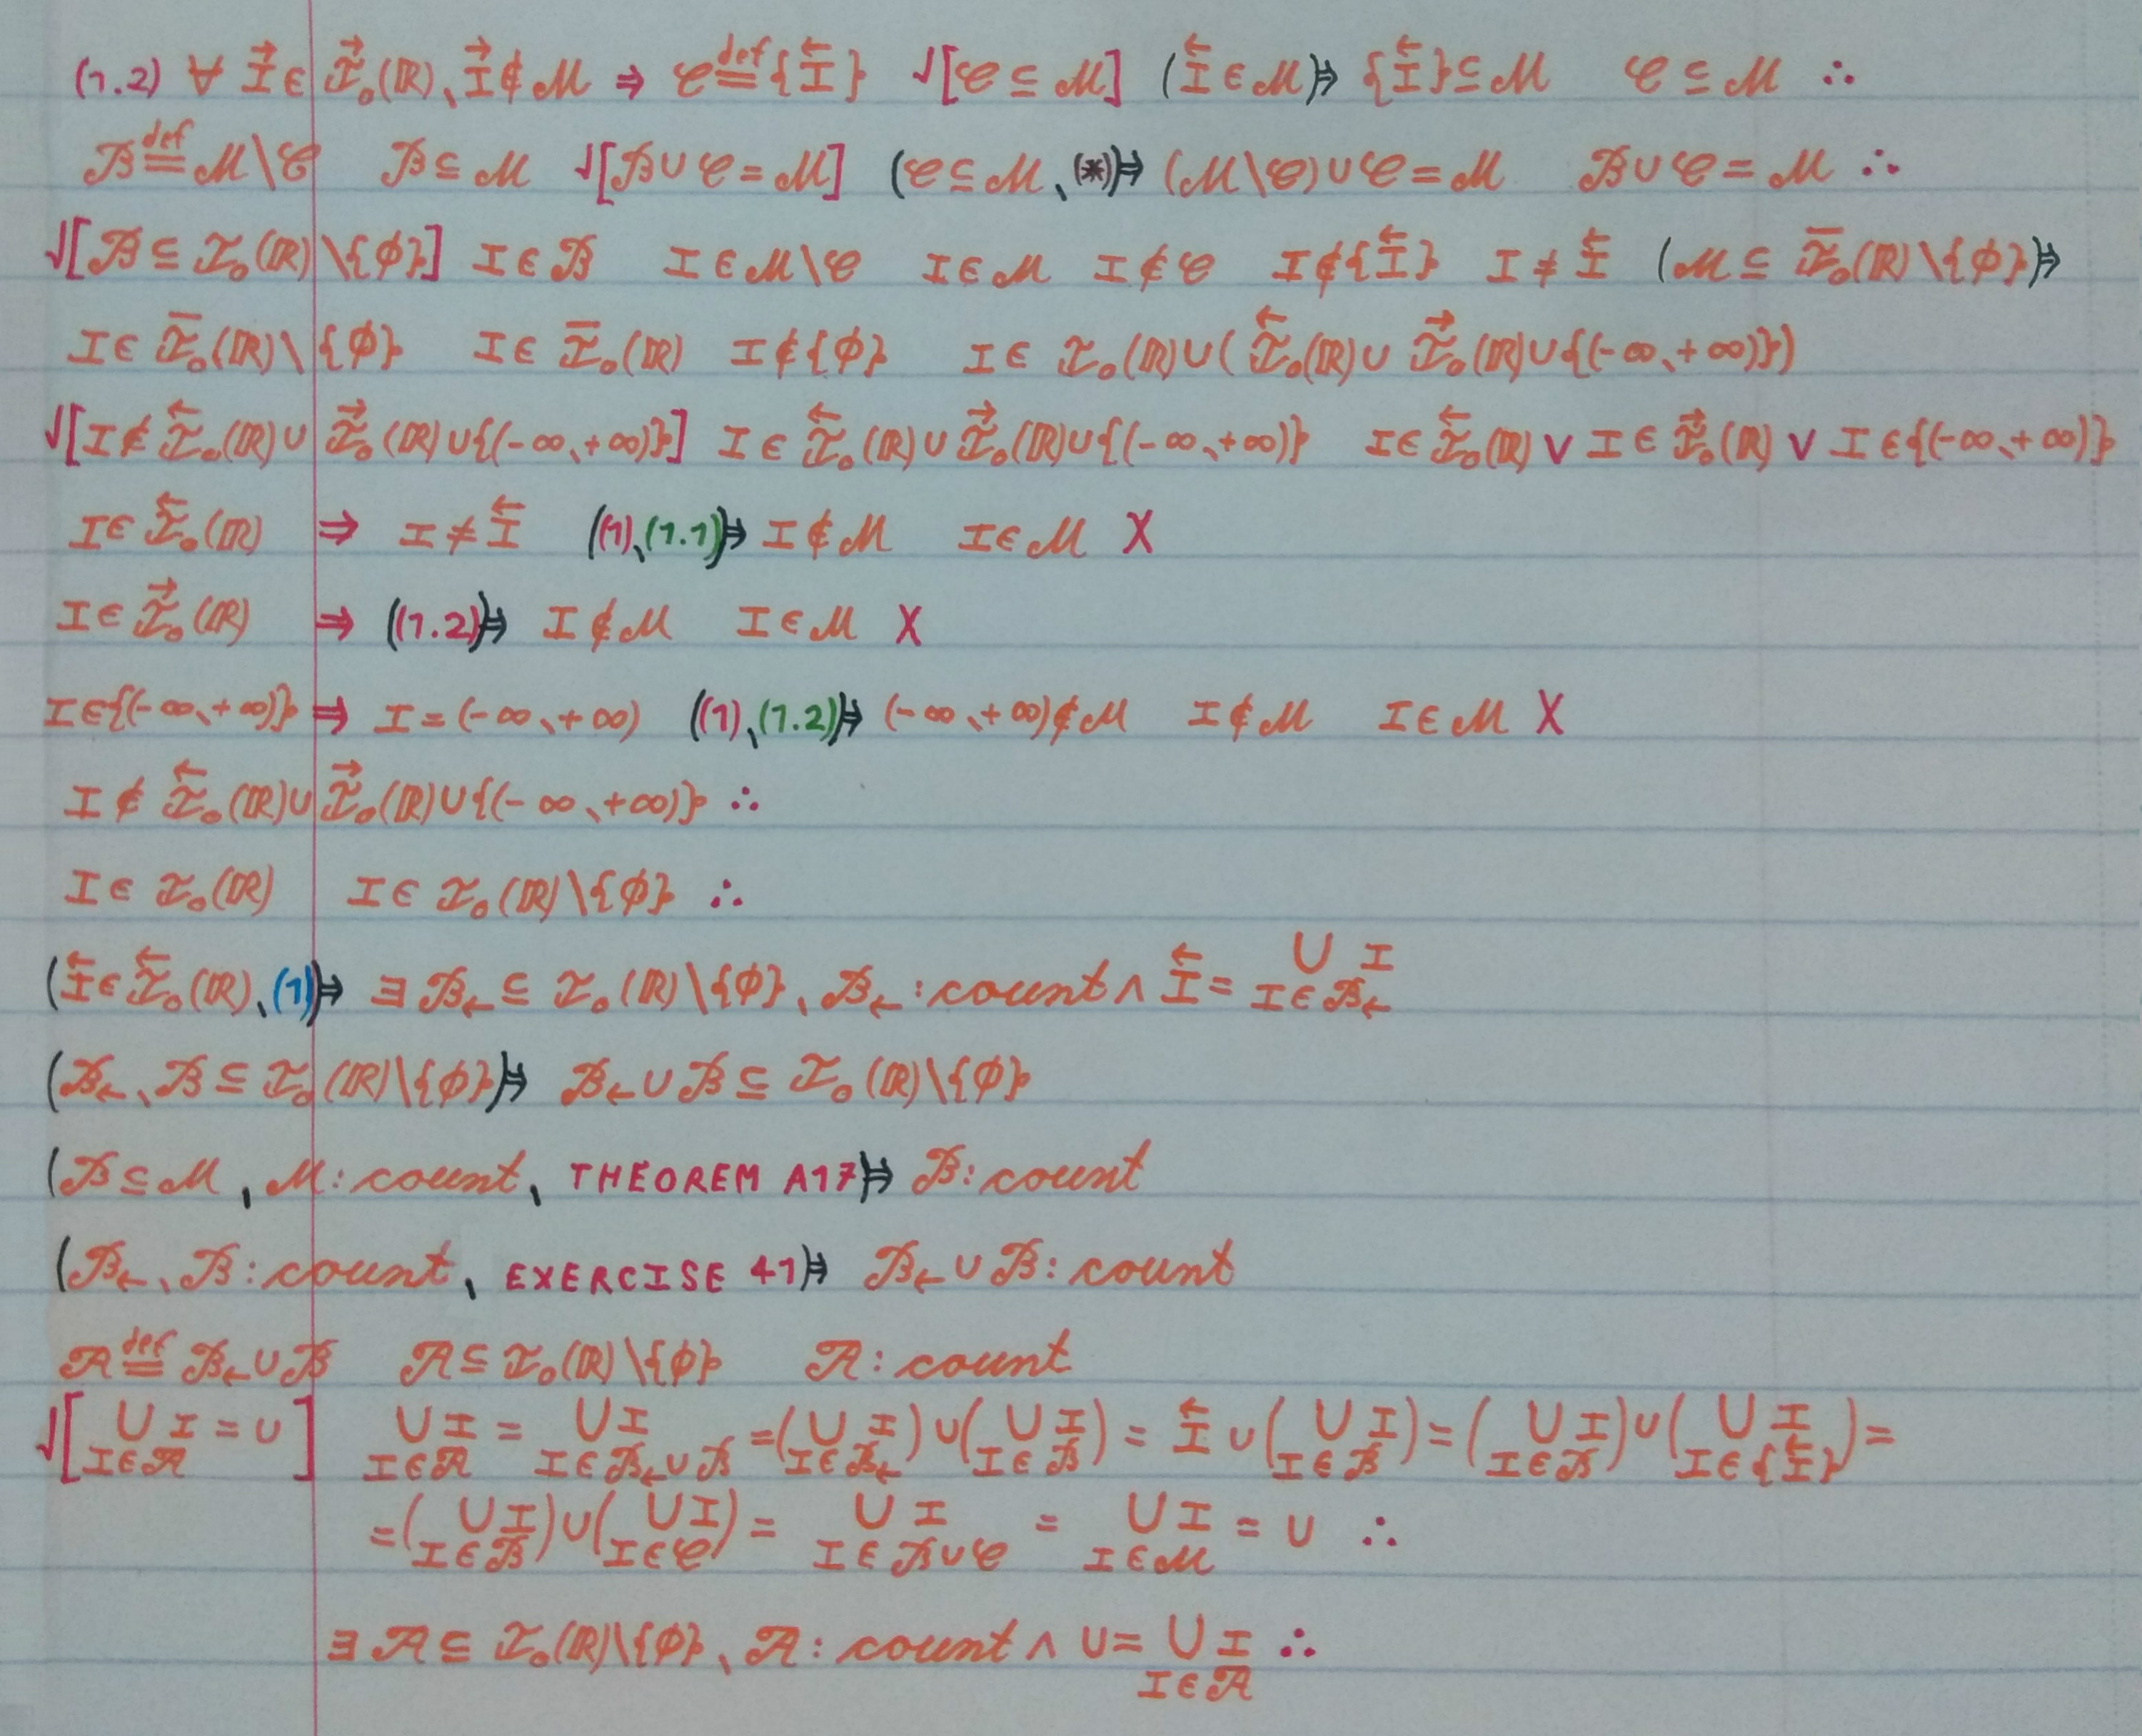 (1.2) ∀ I⃗ ∈ ℐ⃗₀(ℝ), I⃗ ∉ ℳ ⇒ 𝒞 ≝ {I⃖} √[𝒞 ⊆ ℳ] (I⃖ ∈ ℳ)⇒ {I⃖} ⊆ ℳ 𝒞 ⊆ ℳ ∴
ℬ ≝ ℳ\𝒞 ℬ ⊆ ℳ √[ℬ ∪ 𝒞 = ℳ] (𝒞 ⊆ ℳ, (*))⇒ (ℳ\𝒞) ∪ 𝒞 = ℳ ℬ ∪ 𝒞 = ℳ ∴
√[ℬ ⊆ ℐ₀(ℝ)\{ϕ}] I ∈ ℬ I ∈ ℳ\𝒞 I ∈ ℳ I ∉ 𝒞 I ∉ {I⃖} I ≠ I⃖ (ℳ ⊆ ℐ̅₀(ℝ)\{ϕ})⇒
I ∈ ℐ̅₀(ℝ)\{ϕ} I ∈ ℐ̅₀(ℝ) I ∉ {ϕ} I ∈ ℐ₀(ℝ) ∪ (ℐ⃖₀(ℝ) ∪ ℐ⃗₀(ℝ) ∪ {(-∞, +∞)})
√[I ∉ ℐ⃖₀(ℝ) ∪ ℐ⃗₀(ℝ) ∪ {(-∞, +∞)}] I ∈ ℐ⃖₀(ℝ) ∪ ℐ⃗₀(ℝ) ∪ {(-∞, +∞)} I ∈ ℐ⃖₀(ℝ) ∨ I ∈ ℐ⃗₀(ℝ) ∨ I ∈ {(-∞, +∞)}
I ∈ ℐ⃖₀(ℝ) ⇒ I ≠ I⃖ ((1), (1.1))⇒ I ∉ ℳ I ∈ ℳ X
I ∈ ℐ⃗₀(ℝ) ⇒ ((1.2))⇒ I ∉ ℳ I ∈ ℳ X
I ∈ {(-∞, +∞)} ⇒ I = (-∞, +∞) ((1), (1.2))⇒ (-∞, +∞) ∉ ℳ I ∉ ℳ I ∈ ℳ X
I ∉ ℐ⃖₀(ℝ) ∪ ℐ⃗₀(ℝ) ∪ {(-∞, +∞)} ∴
I ∈ ℐ₀(ℝ) I ∈ ℐ₀(ℝ)\{ϕ} ∴
(I⃖ ∈ ℐ⃖₀(ℝ), (1))⇒ ∃ ℬ← ⊆ ℐ₀(ℝ)\{ϕ}, ℬ← : count ∧ I⃖ = ⋃_{I ∈ ℬ←} I
(ℬ←, ℬ ⊆ ℐ₀(ℝ)\{ϕ})⇒ ℬ← ∪ ℬ ⊆ ℐ₀(ℝ)\{ϕ}
(ℬ ⊆ ℳ, ℳ : count, THEOREM A17)⇒ ℬ : count
(ℬ←, ℬ : count, EXERCISE 41)⇒ ℬ← ∪ ℬ : count
𝒜 ≝ ℬ← ∪ ℬ 𝒜 ⊆ ℐ₀(ℝ)\{ϕ} 𝒜 : count
√[⋃_{I ∈ 𝒜} I = U] ⋃_{I ∈ 𝒜} I = ⋃_{I ∈ ℬ← ∪ ℬ} I = (⋃_{I ∈ ℬ←} I) ∪ (⋃_{I ∈ ℬ} I) = I⃖ ∪ (⋃_{I ∈ ℬ} I) = (⋃_{I ∈ ℬ} I) ∪ (⋃_{I ∈ {I⃖}} I) =
= (⋃_{I ∈ ℬ} I) ∪ (⋃_{I ∈ 𝒞} I) = ⋃_{I ∈ ℬ ∪ 𝒞} I = ⋃_{I ∈ ℳ} I = U ∴
∃ 𝒜 ⊆ ℐ₀(ℝ)\{ϕ}, 𝒜 : count ∧ U = ⋃_{I ∈ 𝒜} I ∴